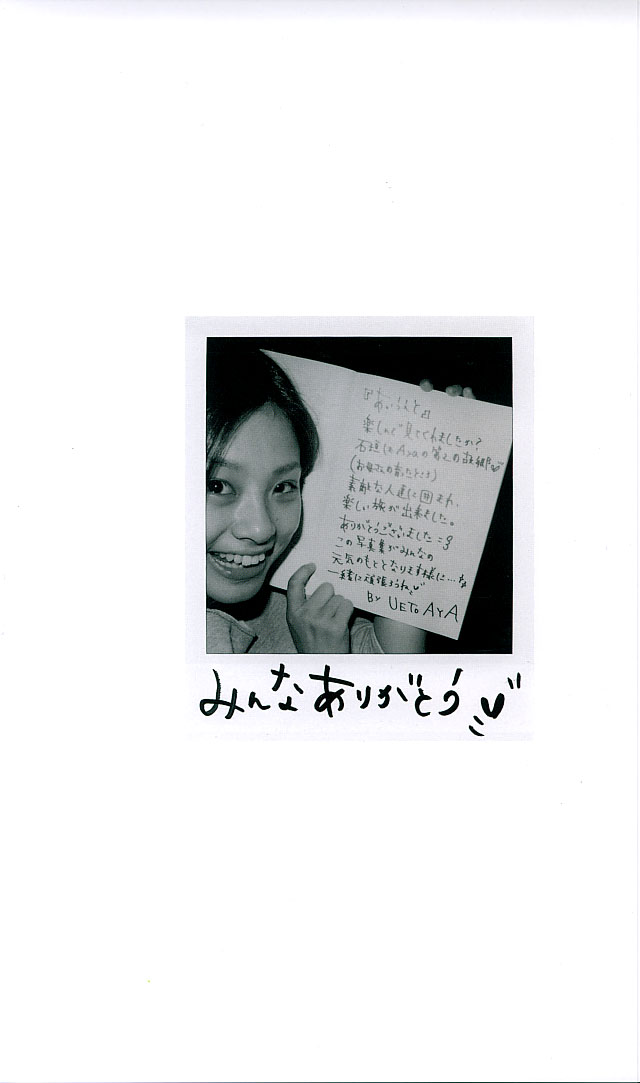 『あいうえと』
楽しんで見てくれましたか?
石垣はAyaの第2の故郷♡
(お母さんの育ったとこ)
素敵な人達に囲まれ、
楽しい旅が出来ました。
ありがとうございました
この写真集がみんなの
元気のもととなります様に…ね
一緒に頑張ろうね♡
BY UETO AYA
みんなありがとう♡